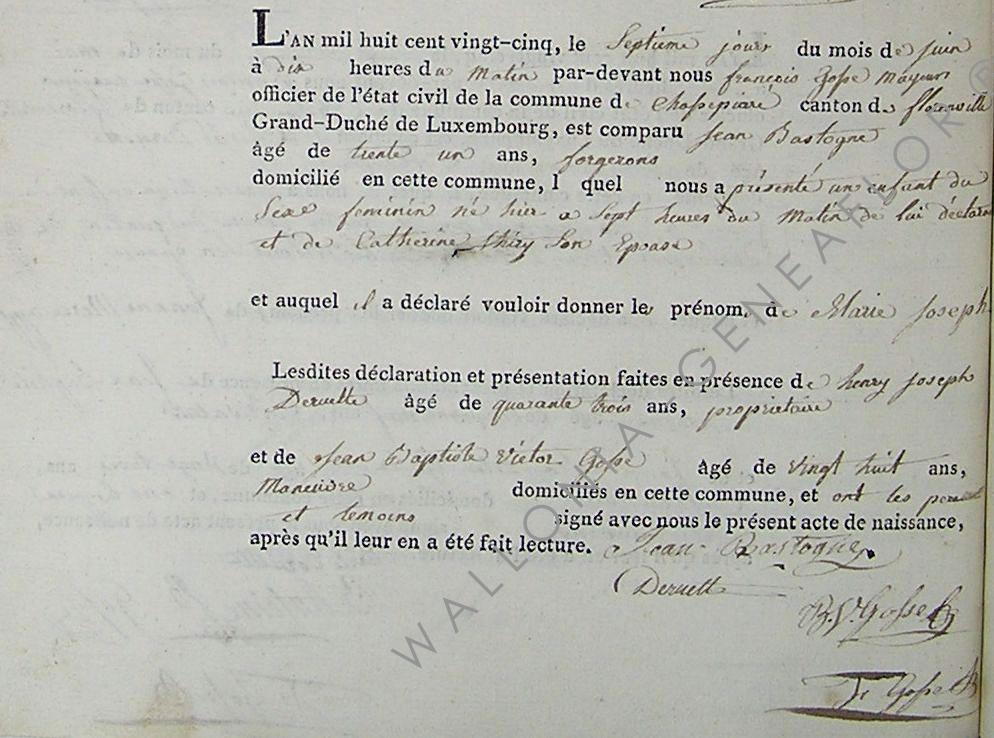 L'AN mil huit cent vingt-cinq, le Septieme jour du mois de juin
à dix heures du Matin par-devant nous françois Gosse Mayeur
officier de l'état civil de la commune de Chassepierre canton de florenville
Grand-Duché de Luxembourg, est comparu Jean Bastogne
âgé de trente un ans, forgerons
domicilié en cette commune, l quel nous a présenté un enfant du
Sexe feminin né hier a Sept heures du Matin de lui déclarant
et de Catherine thiry Son Epouse
et auquel il a déclaré vouloir donner le prénom de Marie Joseph
Lesdites déclaration et présentation faites en présence de henry Joseph
Deruette âgé de quarante trois ans, proprietaire
et de Jean Baptiste Victor Gosse âgé de vingt huit ans,
domiciliés en cette commune, et ont les
et temoins signé avec nous le présent acte de naissance,
après qu'il leur en a été fait lecture. Jean Bastogne
Deruett
B.V. Gosse
fr Gosse
WALLONIA GENEAFLOR ©